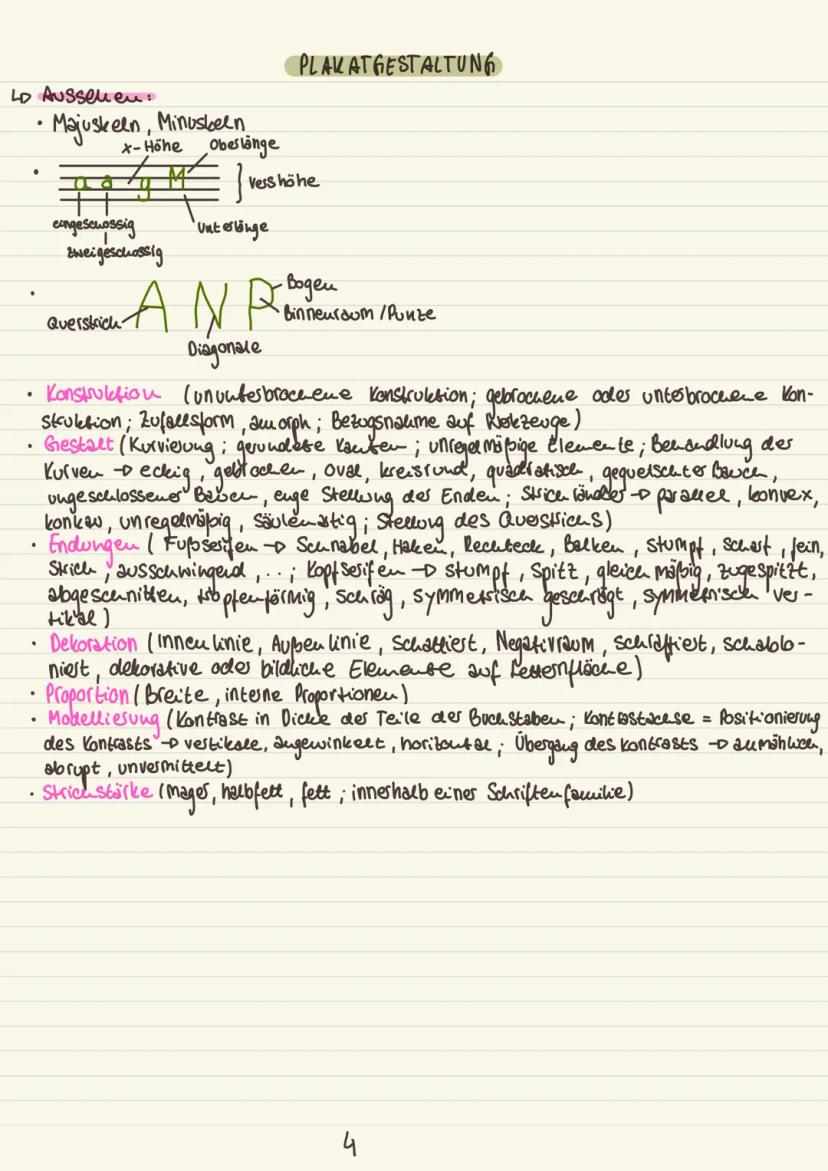 PLAKATGESTALTUNG
↳ Aussehen:
• Majuskeln, Minuskeln
x-Höhe Oberlänge
• a a g M } Vershöhe
eingeschossig Unterlänge
zweigeschossig
• A N P Bogen
Querstrich Binnenraum / Punze
Diagonale
• Konstruktion (ununterbrochene Konstruktion; gebrochene oder unterbrochene Kon-
struktion; Zufallsform, amorph; Bezugsnahme auf Werkzeuge)
• Gestalt (Kurvierung; gerundete Kanten; unregelmäßige Elemente; Behandlung der
Kurven → eckig, gebrochen, oval, kreisrund, quadratisch, gequetschter Bauch,
ungeschlossener, enge Stellung der Enden; Strichränder → parallel, konvex,
konkav, unregelmäßig, säulenartig; Stellung des Querstrichs)
• Endungen (Fußserifen → Schnabel, Haken, Rechteck, Balken, stumpf, scharf, fein,
Strich, ausschwingend, ..; Kopfserifen → stumpf, spitz, gleichmäßig, zugespitzt,
abgeschnitten, tropfenförmig, schräg, symmetrisch geschrägt, symmetrisch ver-
tikal)
• Dekoration (Innenlinie, Außenlinie, schattiert, Negativraum, schraffiert, schablo-
niert, dekorative oder bildliche Elemente auf Letternfläche)
• Proportion (Breite, interne Proportionen)
• Modellierung (Kontrast in Dicke der Teile der Buchstaben; Kontrastachse = Positionierung
des Kontrasts → vertikale, angewinkelt, horizontal; Übergang des Kontrasts → allmählich,
abrupt, unvermittelt)
• Strichstärke (Mager, halbfett, fett; innerhalb einer Schriftenfamilie)
4